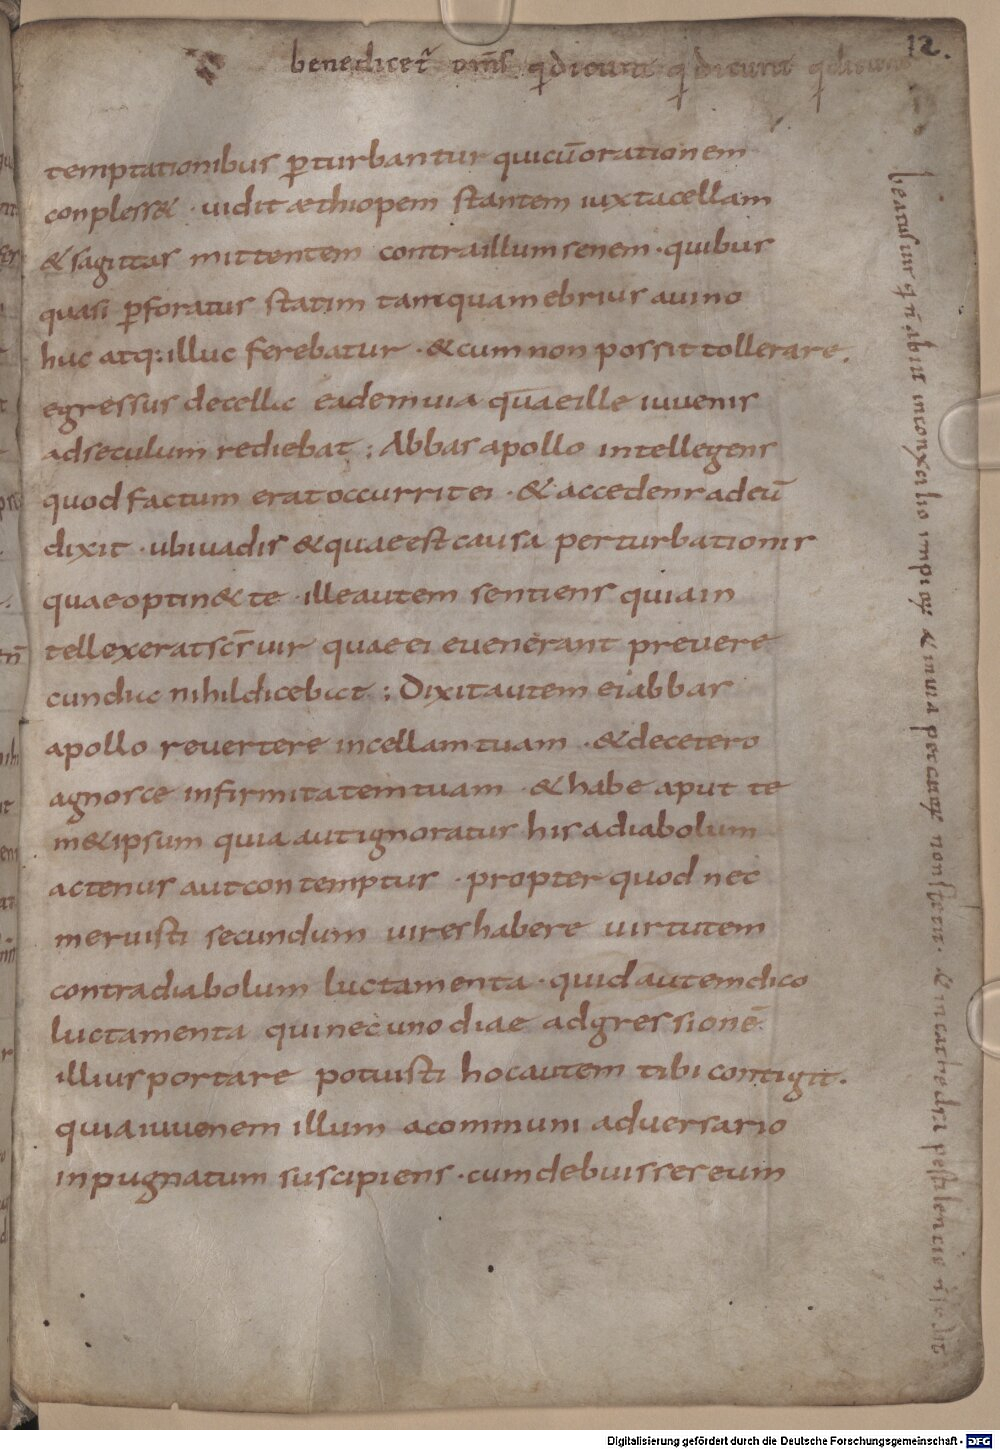 12.
benedicet̃ om̃s qui dicunt qui dicunt
temptationibus ꝑturbantur qui cū orationem
conpless& · uidit æthiopem stantem iuxta cellam
& sagittas mittentem contra illum senem · quibus
quasi ꝑforatus statim tamquam ebrius a uino
huc atq: illuc ferebatur · & cum non possit tollerare.
egressus de cella eadem uia qua eille iuuenis
ad seculum rediebat ; Abbas apollo intellegens
quod factum erat occurrit ei · & accedens ad eū
dixit · ubi uadis & quae est causa perturbationis
quae optin& te · ille autem sentiens quia in
tellexerat scs̄ uir quae ei euenerant pre uere
cundia nihil dicebat ; Dixit autem ei abbas
apollo reuertere in cellam tuam · & de cetero
agnosce infirmitatem tuam · & habe aput te
m&ipsum quia aut ignoratus his a diabolum
actenus aut contemptus · propter quod nec
meruisti secundum uires habere uirtutem
contra diabolum luctamenta · quid autem dico
luctamenta qui nec uno diae adgressionē
illius portare potuisti hoc autem tibi contigit.
quia iuuenem illum a communi aduersario
inpugnatum suscipiens · cum debuisses eum
beatus uir qui n̄ abiit in conxilio impioꝝ & in uia peccatoꝝ non stetit · & in cathedra pestilencie n̄ sedit
Digitalisierung gefördert durch die Deutsche Forschungsgemeinschaft - DFG